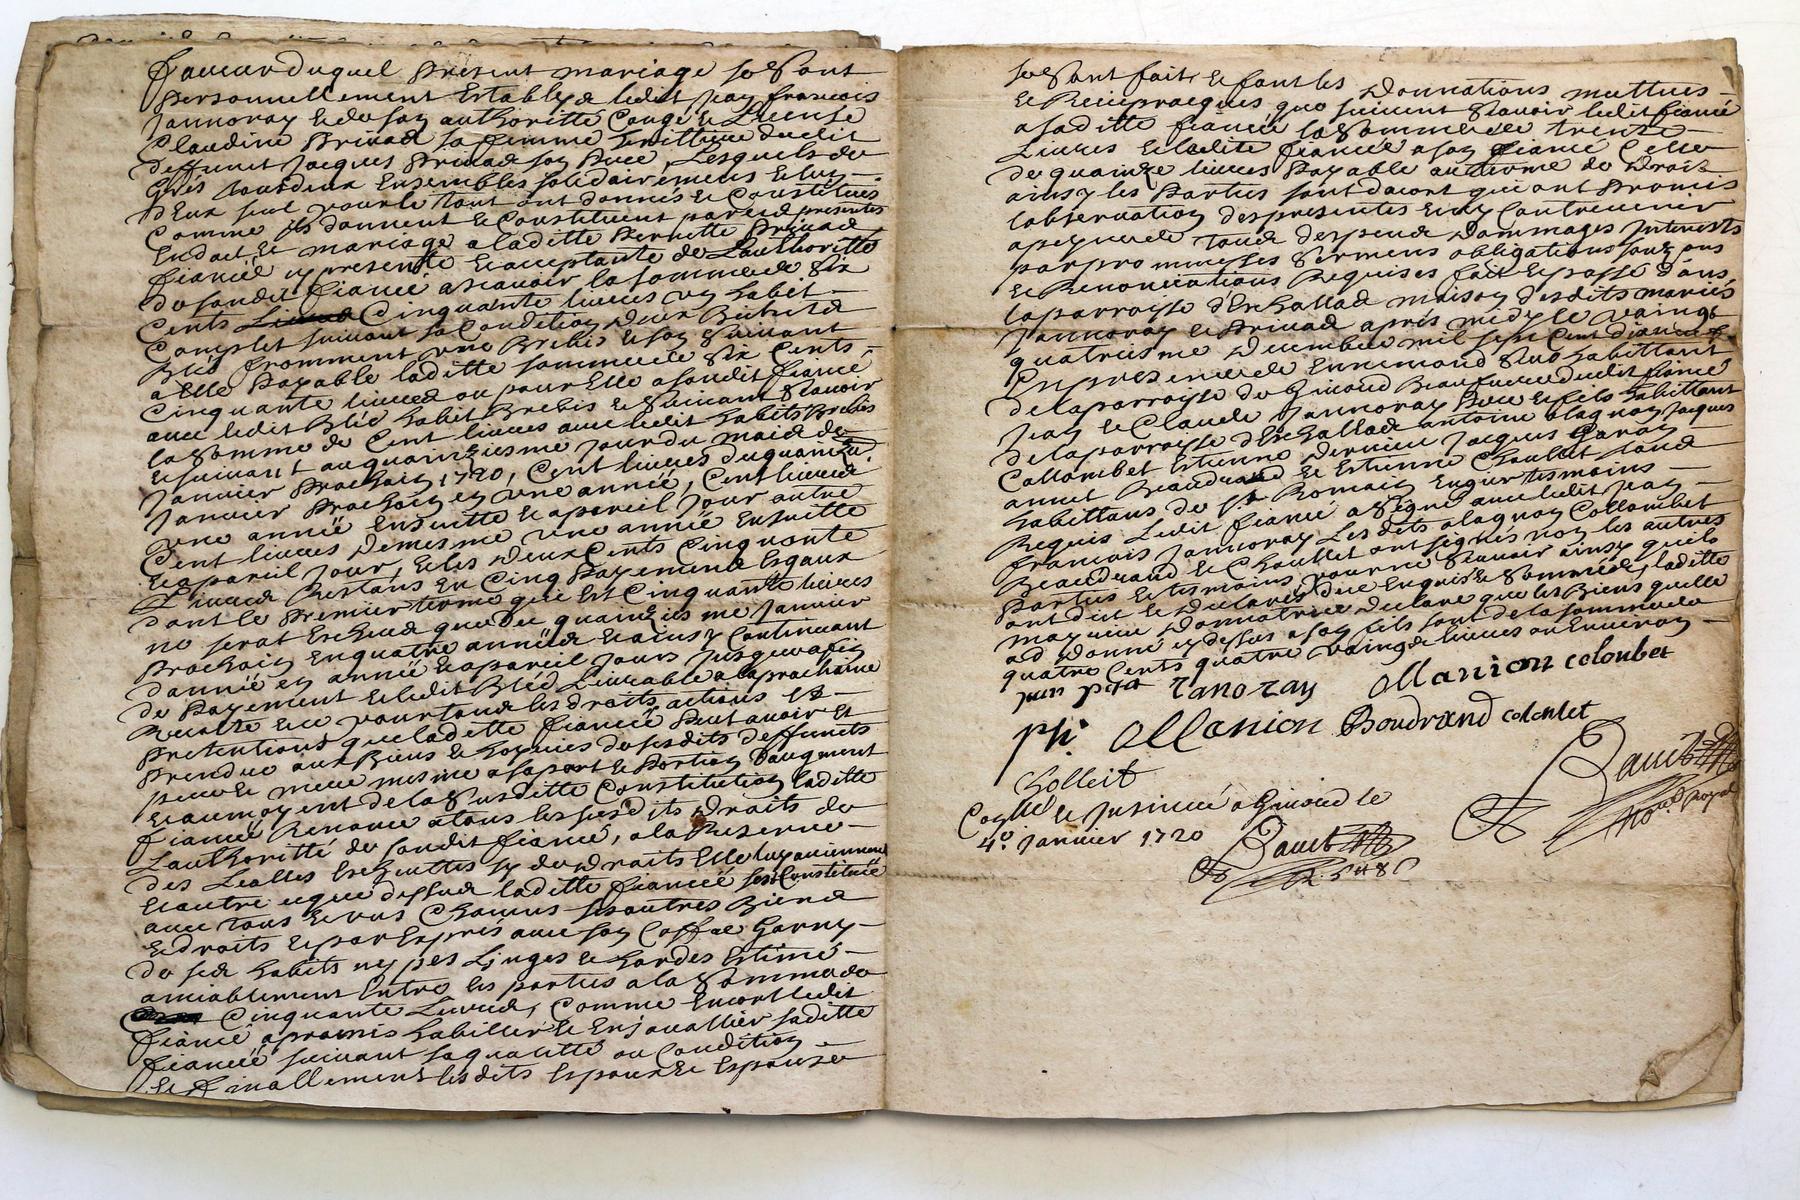 faveur duquel present mariage se sont
personnellement establys ledit Jean francois
Jannoray et de son authoritté Congé et License
Claudine Privad sa femme heritiere dudit
deffunct Jacques Privad son Pere, Lesquels de
Grés tous deux Ensembles solidairement et lun
d'Eux seul pour le tout ont donnés et Constitués
Comme ils donnent et Constituent par ces presentes
En dot et mariage a laditte Pernette Privad
fiancée cy presente et acceptante de Lauthoritté
de sondit fiancé ascavoir la somme de six
Cents Cinquante livres un habit
Complet suivant sa Condition Deux Bichets
Bléd fromment une Brebis et son suivant
a Elle Payable laditte somme de six Cents
Cinquante livres ou pour Elle a sondit fiancé
avec ledit Bléd habit Brebis et suivant scavoir
la somme de Cent livres avec ledit habits Brebis
et suivant au quainziesme Jour du mois de
Janvier Prochain 1720, Cent livres du quainze
Janvier Prochain en une année, Cent livres
une année Ensuitte et apareil Jour autre
Cent livres Demesme une année Ensuitte
et apareil Jour, et les Deux Cents Cinquante
Livres Restans En Cinq Payements Esgaux
dont le Premier terme qui Est Cinquante livres
ne serat Escheus que du quainziesme Janvier
Prochain En quatre années et ainsy Continuant
d'année en année et apareil Jours Jusqu'a fin
de Payement et ledit Bléd Livrable a la prochaine
Recolte et ce pour tous les droits, actions et
Pretentions que laditte fiancée Peut avoir et
Prendre aux Biens et hoyries de sesdits deffuncts
pere et mere mesme a sa part et Portion d'augment
et aumoyent de la Susditte Constitution laditte
fiancée Renonce a tous les susdits Droits de
Lauthoritté de sondit fiancé, a la Reserve
des Lealles Escheuttes sy de Droits Elle luy aviennent
et outre ce que dessus laditte fiancée sest Constituée
avec tous et uns Chacuns ses autres Biens
et droits et par Exprés avec son Coffre Garny
de ses habits nippes Linges et hardes Estimé
amiablement Entre les parties a la Somme de
Cinquante Livres, Comme Encor ledit
fiancé a promis habiller et Enjouallier saditte
fiancée suivant sa qualitté ou Condition
Et finallement lesdits Espoux et Espouse
se sont fait et font les Donnations muttues
et Reciproeques que suivent Scavoir ledit fiancé
a saditte fiancée la Somme de trente
Livres et laditte fiancée a son fiancé Celle
de quainze livres Payable au terme de Droit
ainsy les Parties sont dacort qui ont Promis
lobservation des presentes En ny Contrevenir
a peyne de tous despens Dommages Interests
par promesses Sermens obligations soubmissions
et Renonciations Requises fait et passé dans
la parroisse d'Eschallas maison desdits mariés
Jannoray et Privad aprés midy le vaingt
quatriesme Decembre mil sept Cent dixneuf
En presence de Ennemond habittant
de la parroisse de Givord Beaufrere dudit fiancé
Jean et Claude Jannoray Pere et fils habittant
de la parroisse d'Eschallas antoine alagnon Jacques
Collombet Estienne Dervieu Jacques Garon
annet Beaudrand et Estienne Choullet tous
habittans de St Romain En gier tesmoins
Requis Ledit fiancé a signé avec ledit Jean
francois Jannoray Les dits alagnon Collombet
Beaudrand et Choullet ont signés non les autres
Parties et tesmoins pour ne scavoir ainsy quils
ont dit et Declarés de ce Enquis et Sommés, laditte
mayeur Donnatrice Declare que les Biens quelle
a donné cy dessus a son fils sont de la somme de
quatre Cents quatre vaingt livres ou Environ
Janoray allanion coloubet
phi allanion Boudrand colonbet
Cholleit
Con.llé et Insinué a Givord le
4.e Janvier 1720